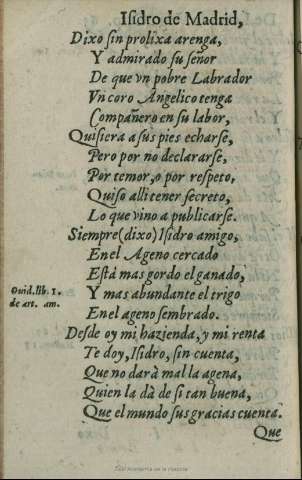 Isidro de Madrid,
Dixo sin prolixa arenga,
Y admirado su señor
De que vn pobre Labrador
Vn coro Angelico tenga
Compañero en su labor,
Quisiera a sus pies echarse,
Pero por no declararse,
Por temor, o por respeto,
Quiso alli tener secreto,
Lo que vino a publicarse.
Siempre (dixo) Isidro amigo,
En el Ageno cercado
Està mas gordo el ganado,
Ouid. lib. 1.
de art. am.
Y mas abundante el trigo
En el ageno sembrado.
Desde oy mi hazienda, y mi renta
Te doy, Isidro, sin cuenta,
Que no darà mal la agena,
Quien la dà de si tan buena,
Que el mundo sus gracias cuenta.
Que
Real Academia de la Historia